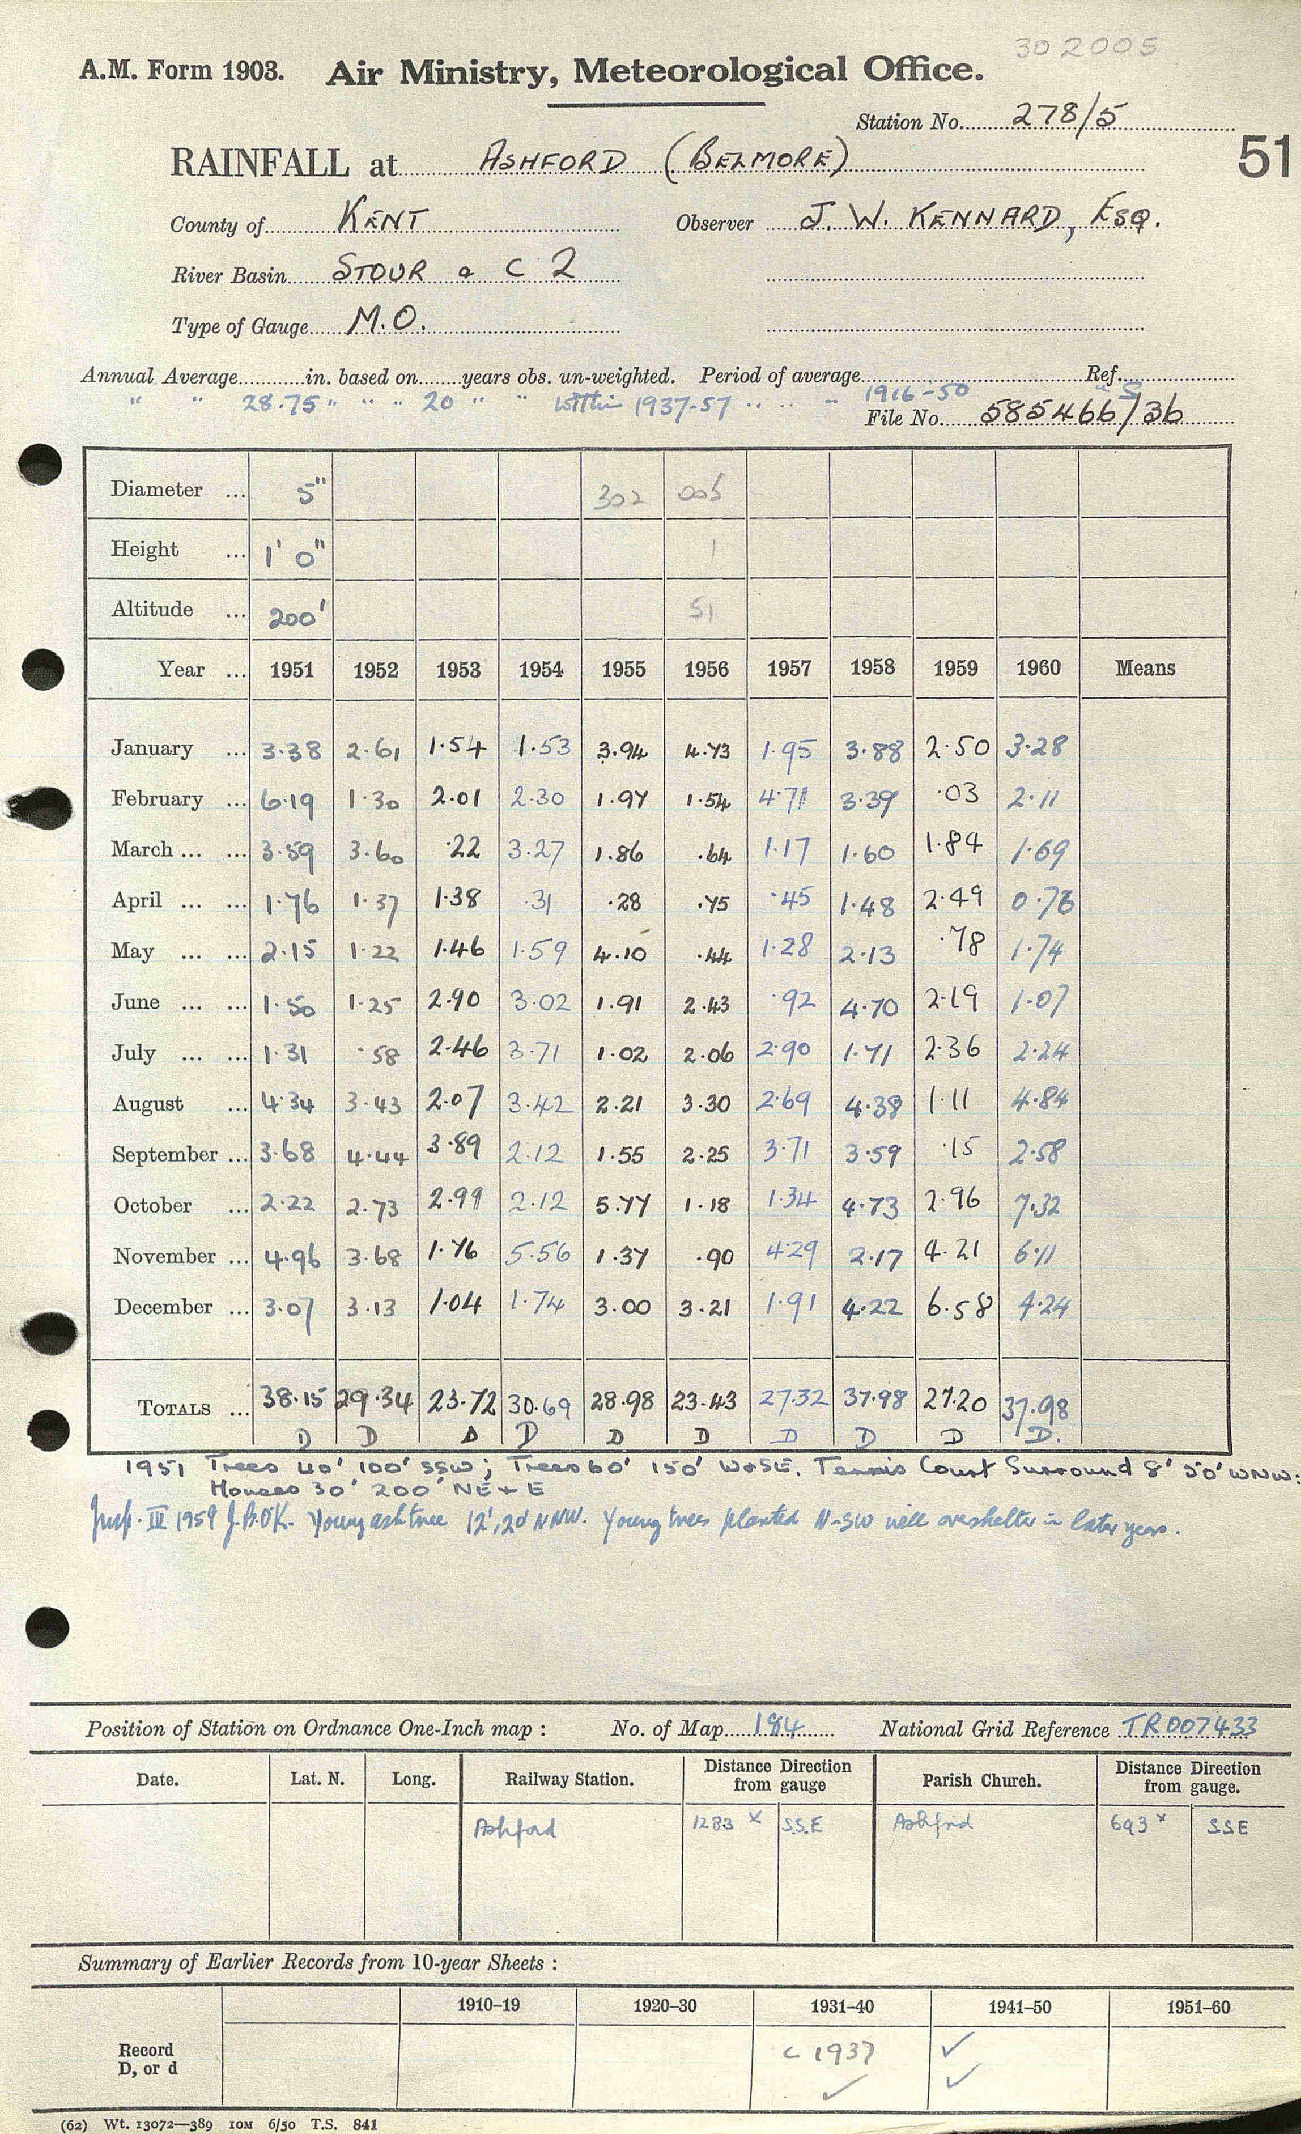 30 2005
A.M. Form 1903. Air Ministry, Meteorological Office.
Station No. 278/5
51
RAINFALL at ASHFORD (BELMORE)
County of KENT Observer J. W. KENNARD, ESQ.
River Basin STOUR & C 2
Type of Gauge M.O.
Annual Average in. based on years obs. un-weighted. Period of average Ref.
" " 28.75 " " " 20 " " within 1937-57 " " " 1916-50 " S
File No. 585466/36
Diameter ... 5" 302 005
Height ... 1' 0" 1
Altitude ... 200' 51
Year ... 1951 1952 1953 1954 1955 1956 1957 1958 1959 1960 Means
January ... 3.38 2.61 1.54 1.53 3.94 4.73 1.95 3.88 2.50 3.28
February ... 6.19 1.30 2.01 2.30 1.97 1.54 4.71 3.39 .03 2.11
March ... ... 3.59 3.60 .22 3.27 1.86 .64 1.17 1.60 1.84 1.69
April ... ... 1.76 1.37 1.38 .31 .28 .75 .45 1.48 2.49 0.76
May ... ... 2.15 1.22 1.46 1.59 4.10 .44 1.28 2.13 .78 1.74
June ... ... 1.50 1.25 2.90 3.02 1.91 2.43 .92 4.70 2.19 1.07
July ... ... 1.31 .58 2.46 3.71 1.02 2.06 2.90 1.71 2.36 2.24
August ... 4.34 3.43 2.07 3.42 2.21 3.30 2.69 4.38 1.11 4.84
September ... 3.68 4.44 3.89 2.12 1.55 2.25 3.71 3.59 .15 2.58
October ... 2.22 2.73 2.99 2.12 5.77 1.18 1.34 4.73 2.96 7.32
November ... 4.96 3.68 1.76 5.56 1.37 .90 4.29 2.17 4.21 6.11
December ... 3.07 3.13 1.04 1.74 3.00 3.21 1.91 4.22 6.58 4.24
TOTALS ... 38.15 29.34 23.72 30.69 28.98 23.43 27.32 37.98 27.20 37.98
D D D D D D D D D D.
1951 Trees 40' 100' SSW; Trees 60' 150' W+SE. Tennis Court Surround 8' 50' WNW:
Houses 30' 200' NE + E
Insp. III 1959 J.B.O'K. Young ash tree 12', 20' NNW. Young trees planted N-SW will overshelter in later years.
Position of Station on Ordnance One-Inch map : No. of Map 184 National Grid Reference TR007433
Date. Lat. N. Long. Railway Station. Distance Direction from gauge Parish Church. Distance Direction from gauge.
Ashford 1283 x S.S.E Ashford 693 x SSE
Summary of Earlier Records from 10-year Sheets :
1910-19 1920-30 1931-40 1941-50 1951-60
Record
D, or d
c 1937 ✓
✓ ✓
(62) Wt. 13072—389 10M 6/50 T.S. 841